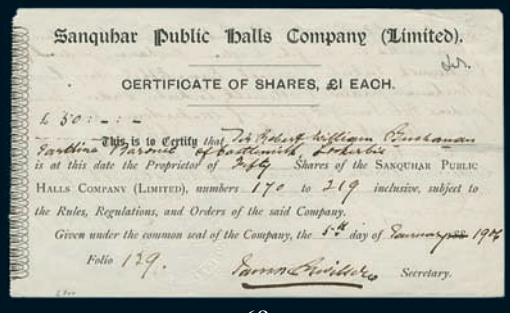 Sanquhar Public Halls Company (Limited).
CERTIFICATE OF SHARES, £1 EACH.
£ 50 : - : -
This is to Certify that Sir Robert William Buchanan
Jardine Baronet of Castlemilk Lockerbie
is at this date the Proprietor of Fifty Shares of the SANQUHAR PUBLIC
HALLS COMPANY (LIMITED), numbers 170 to 219 inclusive, subject to
the Rules, Regulations, and Orders of the said Company.
Given under the common seal of the Company, the 5th day of January 1906
Folio 129. Secretary.